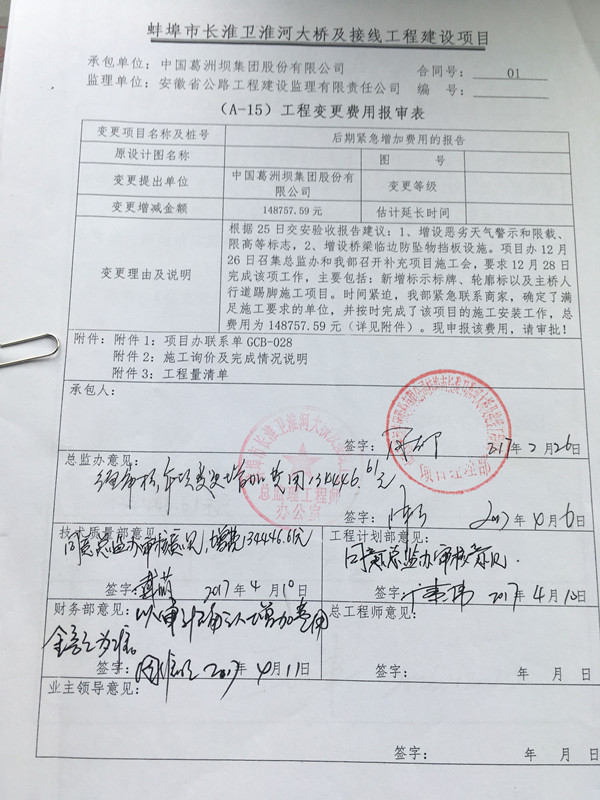 蚌埠市长淮卫淮河大桥及接线工程建设项目
承包单位：中国葛洲坝集团股份有限公司 合同号：01
监理单位：安徽省公路工程建设监理有限责任公司 编 号：
（A-15）工程变更费用报审表
变更项目名称及桩号 后期紧急增加费用的报告
原设计图名称 图 号
变更提出单位 中国葛洲坝集团股份有
限公司 变更等级
变更增减金额 148757.59 元 估计延长时间
变更理由及说明
根据 25 日交安验收报告建议：1、增设恶劣天气警示和限载、
限高等标志，2、增设桥梁临边防坠物挡板设施。项目办 12 月
26 日召集总监办和我部召开补充项目施工会，要求 12 月 28 日
完成该项工作，主要包括：新增标示标牌、轮廓标以及主桥人
行道踢脚施工项目。时间紧迫，我部紧急联系商家，确定了满
足施工要求的单位，并按时完成了该项目的施工安装工作，总
费用为 148757.59 元（详见附件）。现申报该费用，请审批！
附件：附件 1：项目办联系单 GCB-028
附件 2：施工询价及完成情况说明
附件 3：工程量清单
承包人：
签字： 2017年 2 月 26 日
项目经理部
总监办意见：
经审核，该项变更增加费用134446.61元
总监理工程师
办公室
签字： 2017 年 4 月 6 日
技术质量部意见：
同意总监办审核意见，增加134446.61元
签字： 2017 年 4 月 10 日
工程计划部意见：
同意总监办审核意见.
签字： 2017 年 4 月 10 日
财务部意见：以审计确认增加费用
金额为准.
签字： 2017 年 4 月 11 日
总工程师意见：
签字： 年 月 日
业主领导意见：
签字： 年 月 日